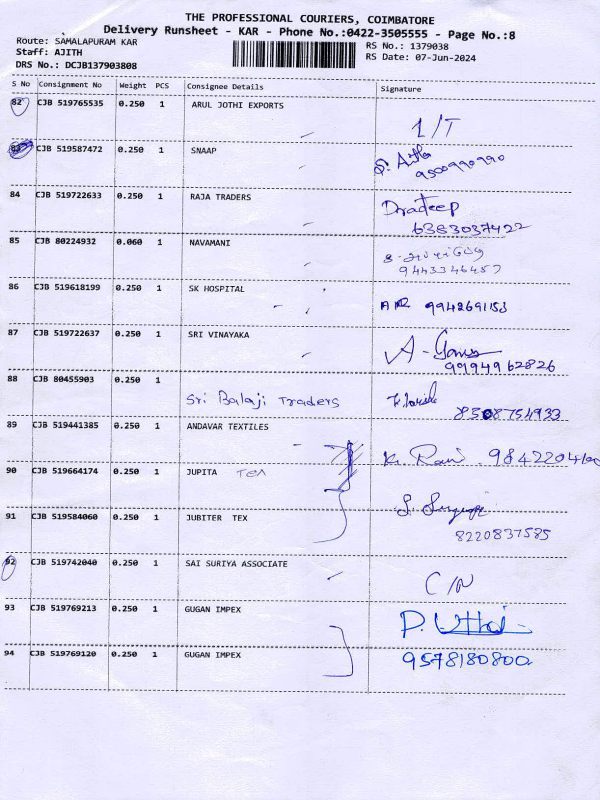 THE PROFESSIONAL COURIERS, COIMBATORE
Delivery Runsheet - KAR - Phone No.:0422-3505555 - Page No.:8
Route: SAMALAPURAM KAR
RS No.: 1379038
Staff: AJITH
RS Date: 07-Jun-2024
DRS No.: DCJB137903808
S No Consignment No Weight PCS Consignee Details Signature
82 CJB 519765535 0.250 1 ARUL JOTHI EXPORTS 1/T
CJB 519587472 0.250 1 SNAAP
9500990990
84 CJB 519722633 0.250 1 RAJA TRADERS Pradeep
6383037422
85 CJB 80224932 0.060 1 NAVAMANI
9443346457
86 CJB 519618199 0.250 1 SK HOSPITAL
87 CJB 519722637 0.250 1 SRI VINAYAKA
9994962826
88 CJB 80455903 0.250 1
Sri Balaji Traders
8508754933
89 CJB 519441385 0.250 1 ANDAVAR TEXTILES
K. Ravi
90 CJB 519664174 0.250 1 JUPITA TEX
91 CJB 519584060 0.250 1 JUBITER TEX
8220837585
92 CJB 519742040 0.250 1 SAI SURIYA ASSOCIATE
C/N
93 CJB 519769213 0.250 1 GUGAN IMPEX
94 CJB 519769120 0.250 1 GUGAN IMPEX 9578180800